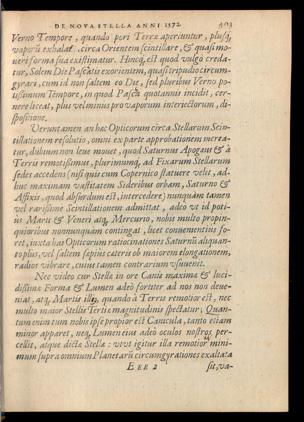 DE NOVA STELLA ANNI 1572.
Verno Tempore, quando pori Terræ aperiuntur, plusq́;
vaporũ exhalat, circa Orientem scintillare, & quasi mo-
veri forma sua existimatur. Hincq́; est quod vulgo creda-
tur, Solem Die Paschatis exorientem, quasi tripudio circum-
gyrari, cum id non saltem eo Die, sed pluribus Verno po-
tissimum Tempore, in quod Pascha quotannis incidit, cer-
nere liceat, plus vel minus pro vaporum interiectorum, di-
spositione.
Veruntamen an hac Opticorum circa Stellarum Scin-
tillationem resolutio, omni ex parte approbationem merea-
tur, dubium non leve movet, quod Saturnus Apogæus & à
Terris remotissimus, plurimumq́; ad Fixarum Stellarum
sedes accedens (nisi quis cum Copernico statuere velit, ad-
huc maximam vastitatem Sideribus orbam, Saturno &
Affixis, quod absurdum est, intercedere) nunquàm tamen
vel rarissime Scintillationem admittat, adeò ut id poti-
us Marti & Veneri atq́; Mercurio, nobis multo propin-
quioribus nonnunquàm contingat, licet convenientius fo-
ret, iuxta has Opticorum ratiocinationes Saturnũ aliquan-
to plus, vel saltem sæpius cæteris ob maiorem elongationem,
radios vibrare, cuius tamen contrarium usuvenit.
Nec video cur Stella in ore Canis maxima & luci-
dissima Forma & Lumen adeò fortiter ad nos non deve-
niat, atq́; Martis quando à Terris remotior est, nec
multo maior Stellis Tertiæ magnitudinis spectatur; Quan-
tum enim tum nobis ipse propior est Canicula, tanto etiam
minor apparet, neq́; Lumen eius adeò oculos nostros per-
cellit, atque dictæ Stellæ: vivi igitur illa remotior mini-
mum supra omnium Planetarũ circumgyrationes exaltata
E E E 2 sit, va-